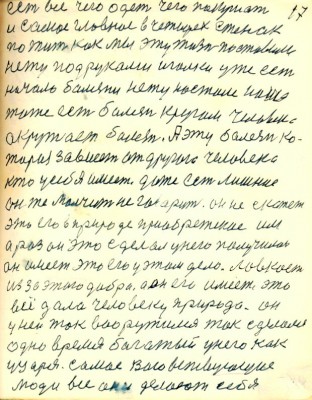 17
ест все чего одет чего покушат
и самое гловное в четырех стенах
пожит. Как мы эту жизн поставили
нету под руками иголки уже ест
начало балезни нету
тоже ест балезн кругом человека
окружает балезн. А эту балезн ко-
торая зависет от другого человека
кто у себя имеет. даже ест лишнее
он же молчит не гаварит. он не скажет
это его в природе приобретение им
а раз он это сделал у него получилос
он имеет это его у этом дело. Ловкост
из за этого добра. он его имеет, это
всё дала человеку природа. он
у ней так вооружился так сделался
одно время богатый у него как
у царя. самое
люди все они делают себя